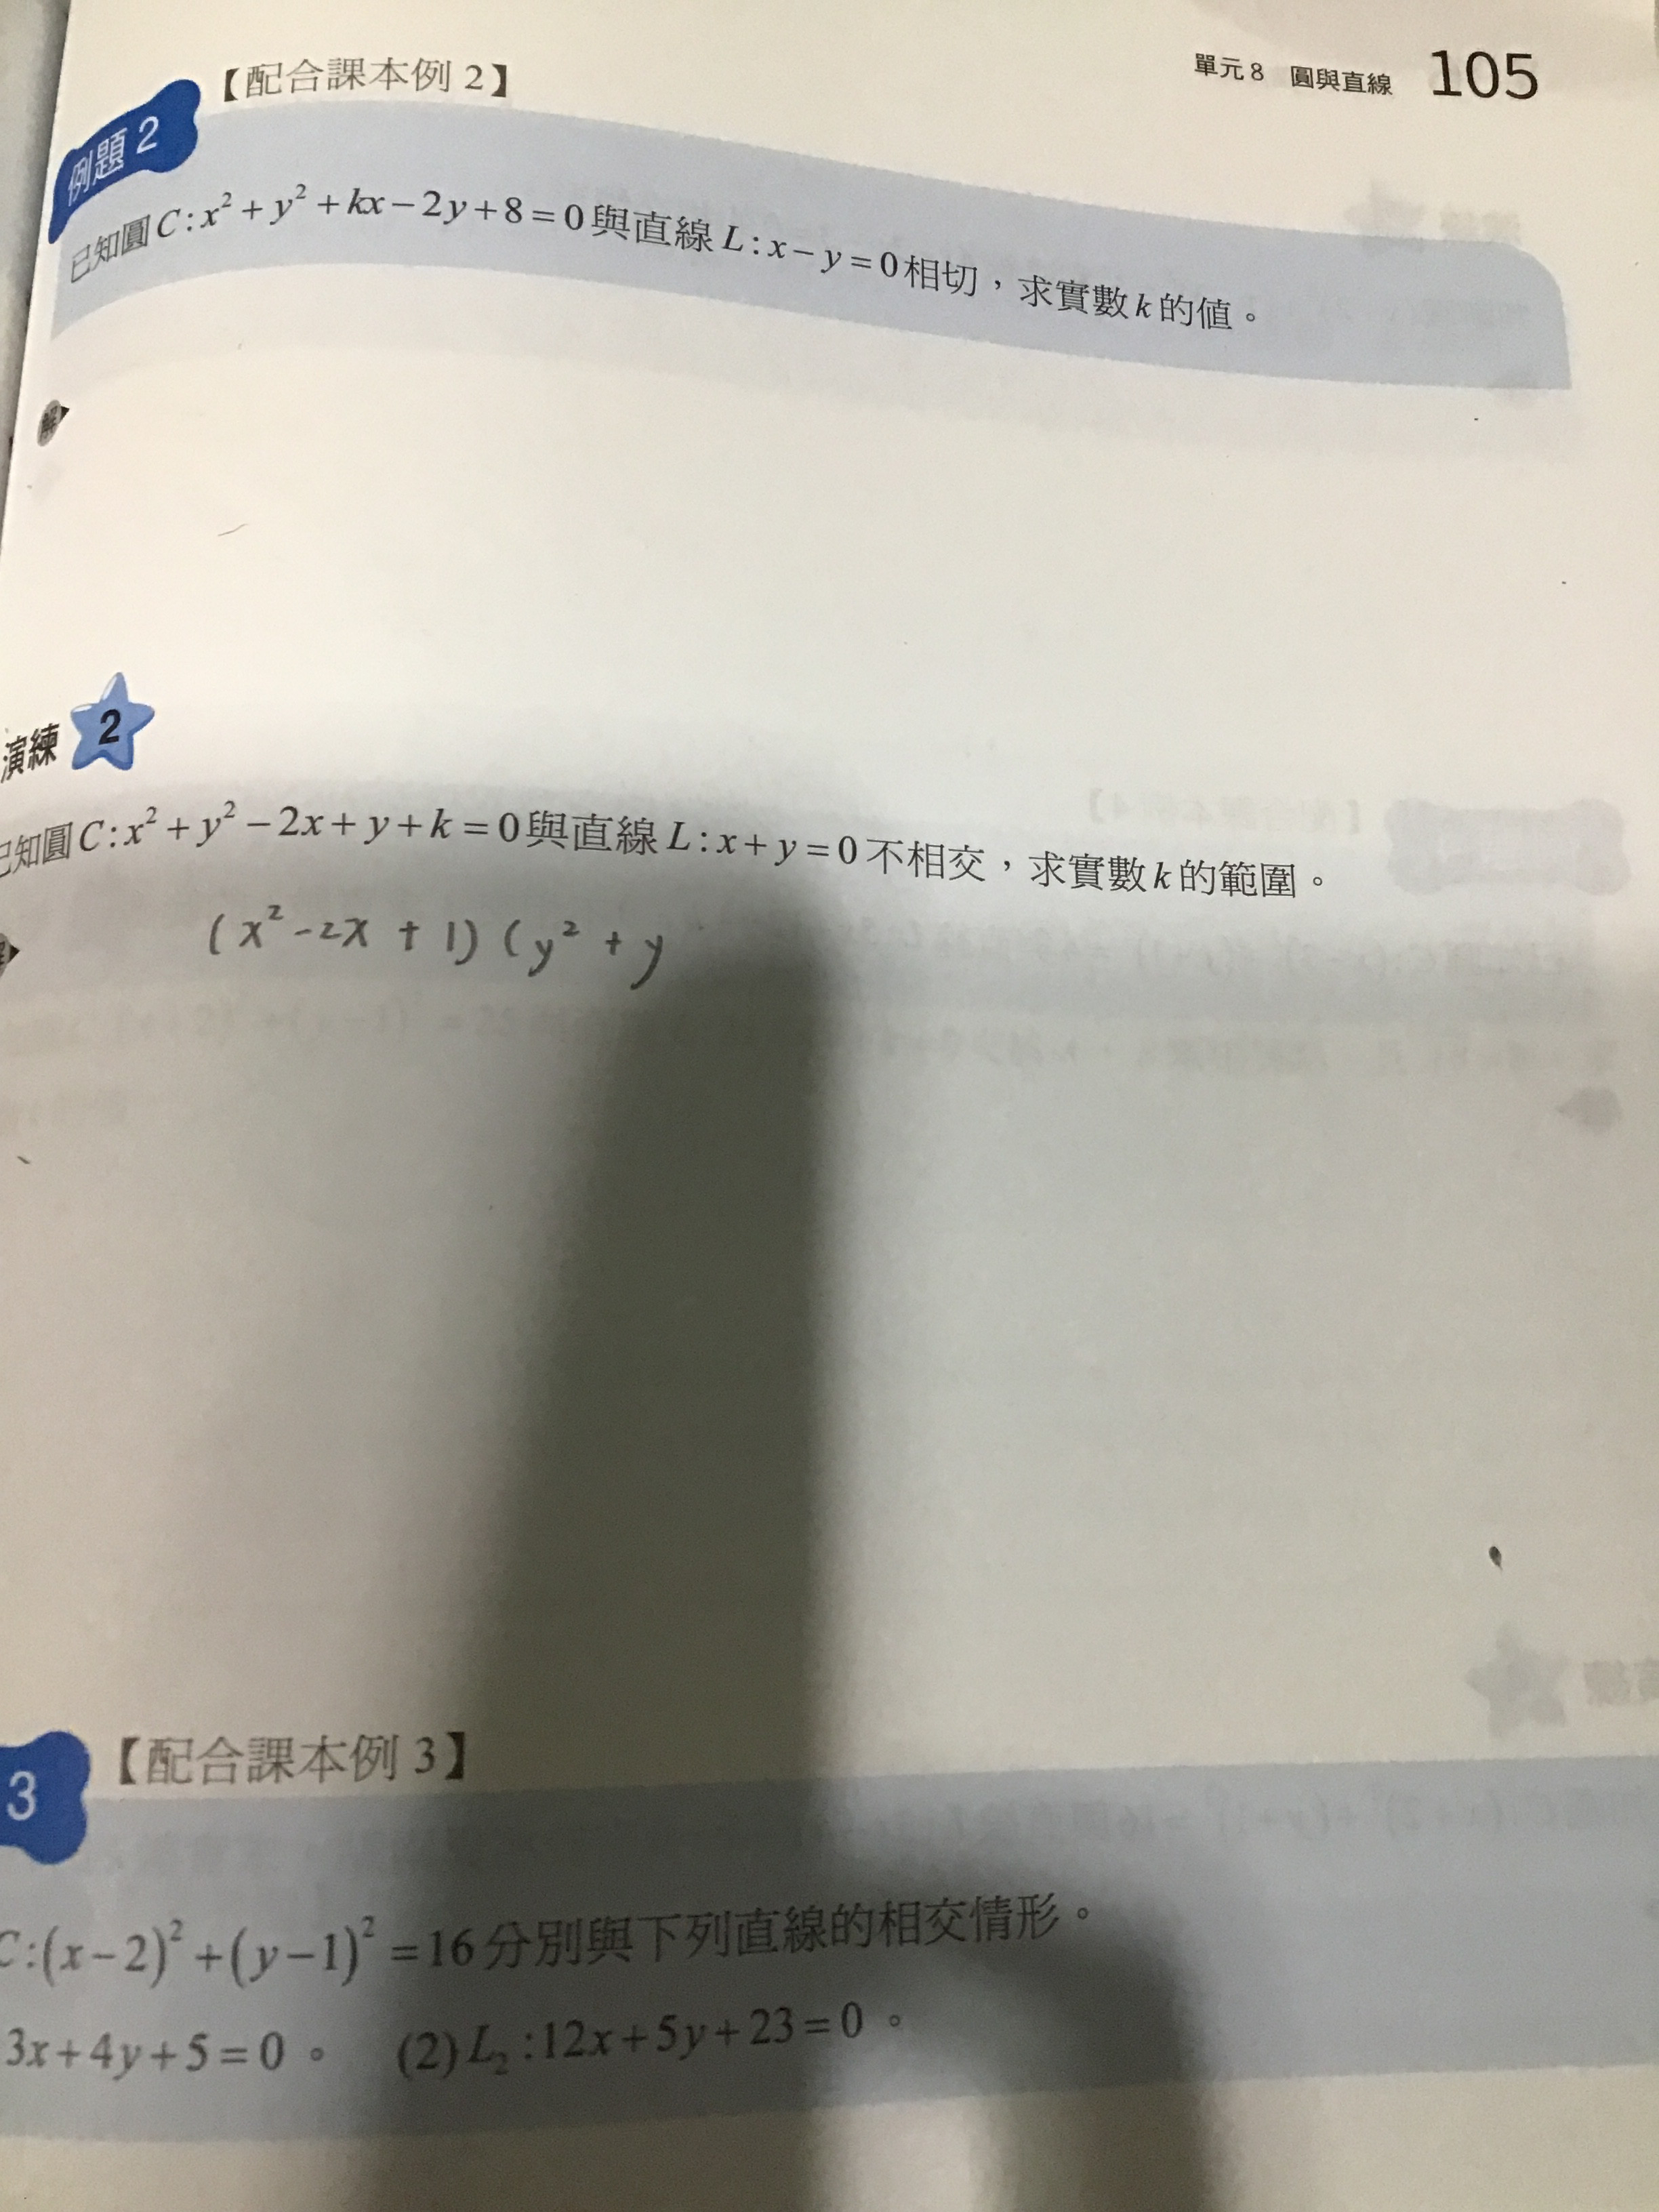 單元8 圓與直線 105
【配合課本例 2】
例題 2
已知圓C:x²+y²+kx−2y+8=0與直線L:x−y=0相切，求實數k的值。
解
演練 2
已知圓C:x²+y²−2x+y+k=0與直線L:x+y=0不相交，求實數k的範圍。
(x²-2x+1)(y²+y
【配合課本例 3】
3
C:(x−2)²+(y−1)²=16分別與下列直線的相交情形。
3x+4y+5=0。 (2)L₂:12x+5y+23=0。